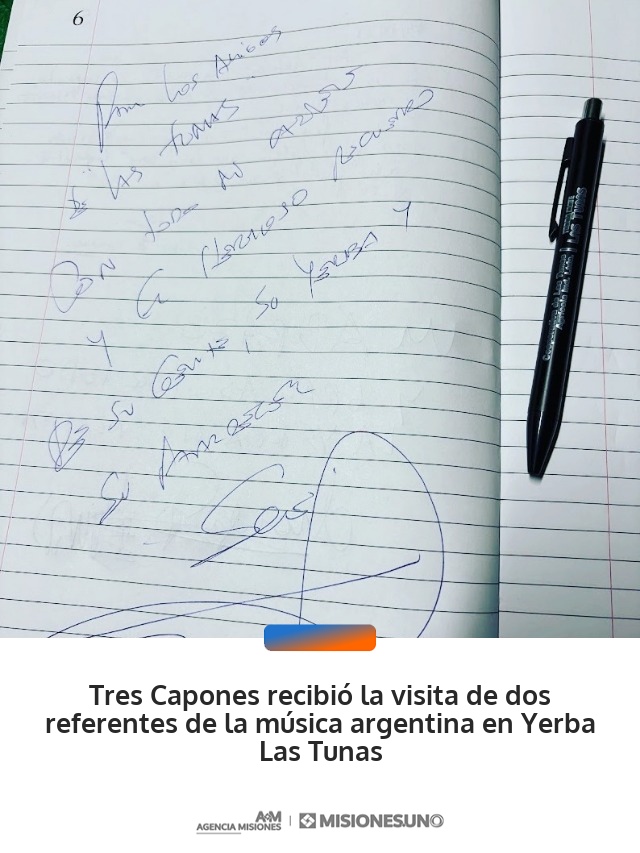 6
Para Los Amigos
De Las Tunas
Con todo mi
Y el Hermoso Recuerdo
De su Gente, su Yerba Y
su
Las Tunas
Tres Capones recibió la visita de dos
referentes de la música argentina en Yerba
Las Tunas
AGENCIA MISIONES
MISIONES.UNO